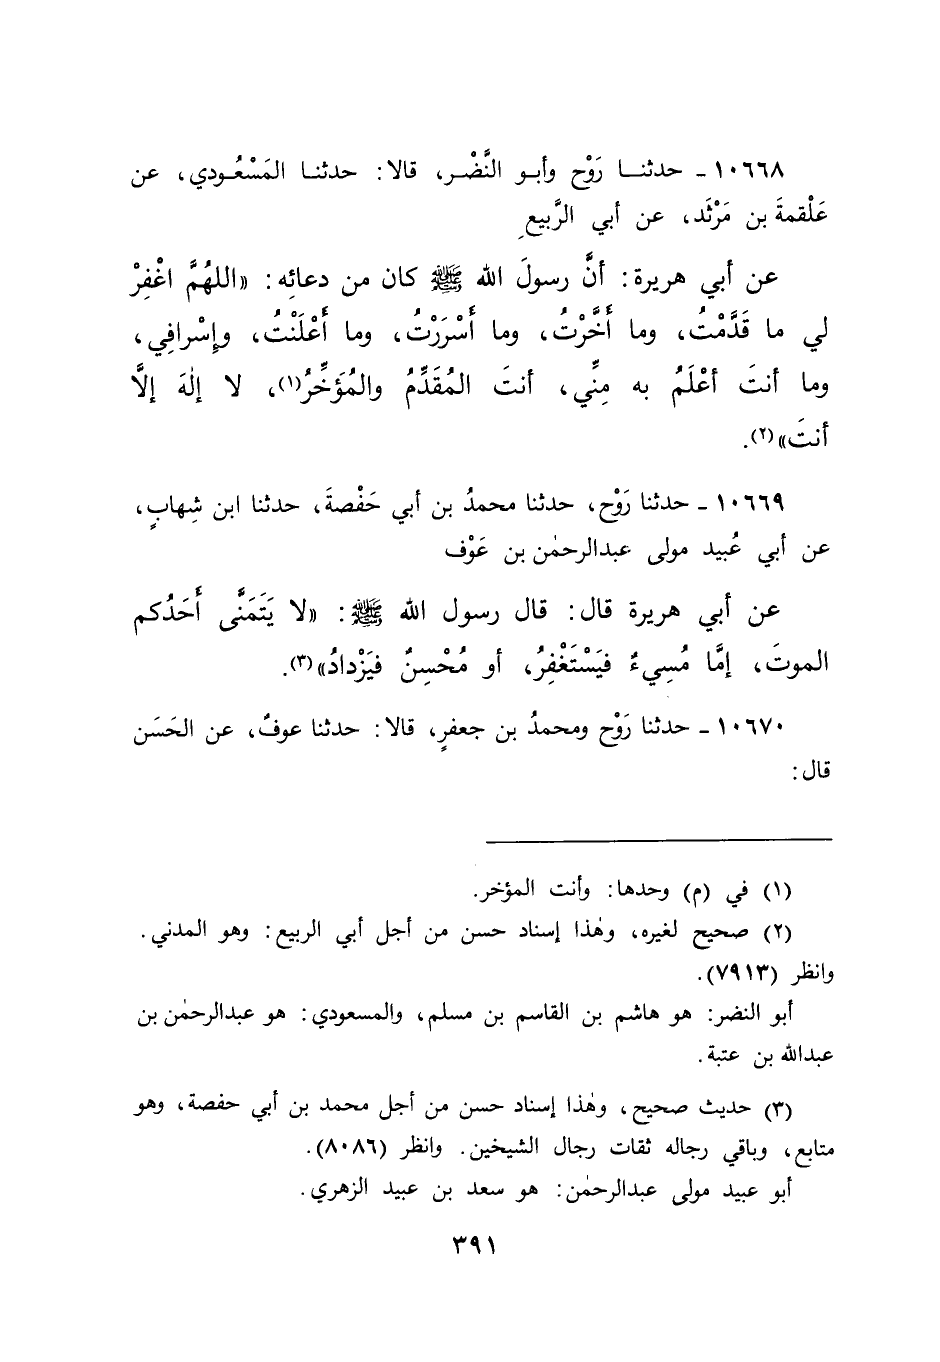 ١٠٦٦٨ ـ حدثنــا رَوْح وأبــو النَّضْــر، قالا: حدثنــا المَسْعُــودي، عن
عَلْقمةَ بن مَرْثَد، عن أبي الرَّبيعِ
عن أبي هريرة: أنَّ رسولَ الله ﷺ كان من دعائِه: «اللهُمَّ اغْفِرْ
لي ما قَدَّمْتُ، وما أَخَّرْتُ، وما أَسْرَرْتُ، وما أَعْلَنْتُ، وإِسْرافِي،
وما أنتَ أعْلَمُ به مِنِّي، أنتَ المُقَدِّمُ والمُؤَخِّرُ(١)، لا إلٰهَ إلَّا
أنتَ»(٢).
١٠٦٦٩ ـ حدثنا رَوْح، حدثنا محمدُ بن أبي حَفْصةَ، حدثنا ابن شِهابٍ،
عن أبي عُبيد مولى عبدالرحمٰن بن عَوْف
عن أبي هريرة قال: قال رسول الله ﷺ: «لا يَتَمَنَّى أَحَدُكم
الموتَ، إمَّا مُسِيءٌ فيَسْتَغْفِرُ، أو مُحْسِنٌ فيَزْدادُ»(٣).
١٠٦٧٠ ـ حدثنا رَوْح ومحمدُ بن جعفرٍ، قالا: حدثنا عوفٌ، عن الحَسَن
قال:
(١) في (م) وحدها: وأنت المؤخر.
(٢) صحيح لغيره، وهٰذا إسناد حسن من أجل أبي الربيع: وهو المدني.
وانظر (٧٩١٣).
أبو النضر: هو هاشم بن القاسم بن مسلم، والمسعودي: هو عبدالرحمٰن بن
عبدالله بن عتبة.
(٣) حديث صحيح، وهٰذا إسناد حسن من أجل محمد بن أبي حفصة، وهو
متابع، وباقي رجاله ثقات رجال الشيخين. وانظر (٨٠٨٦).
أبو عبيد مولى عبدالرحمٰن: هو سعد بن عبيد الزهري.
٣٩١